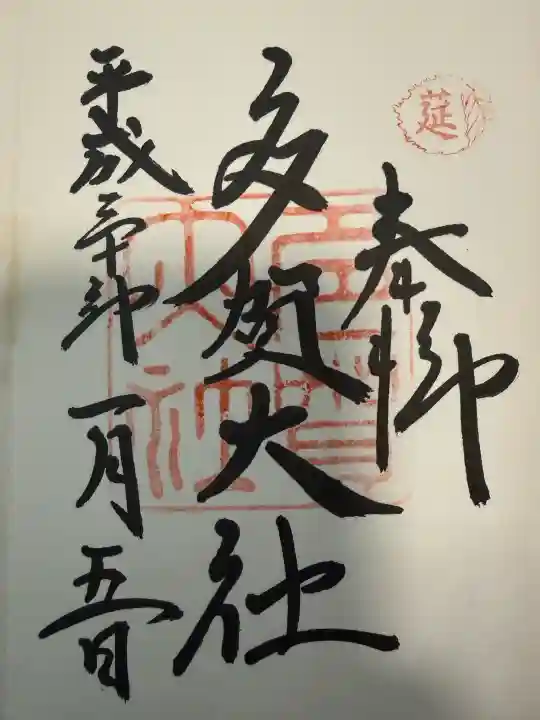 莚
奉拝
多賀大社
多賀大社
平成三十年一月五日